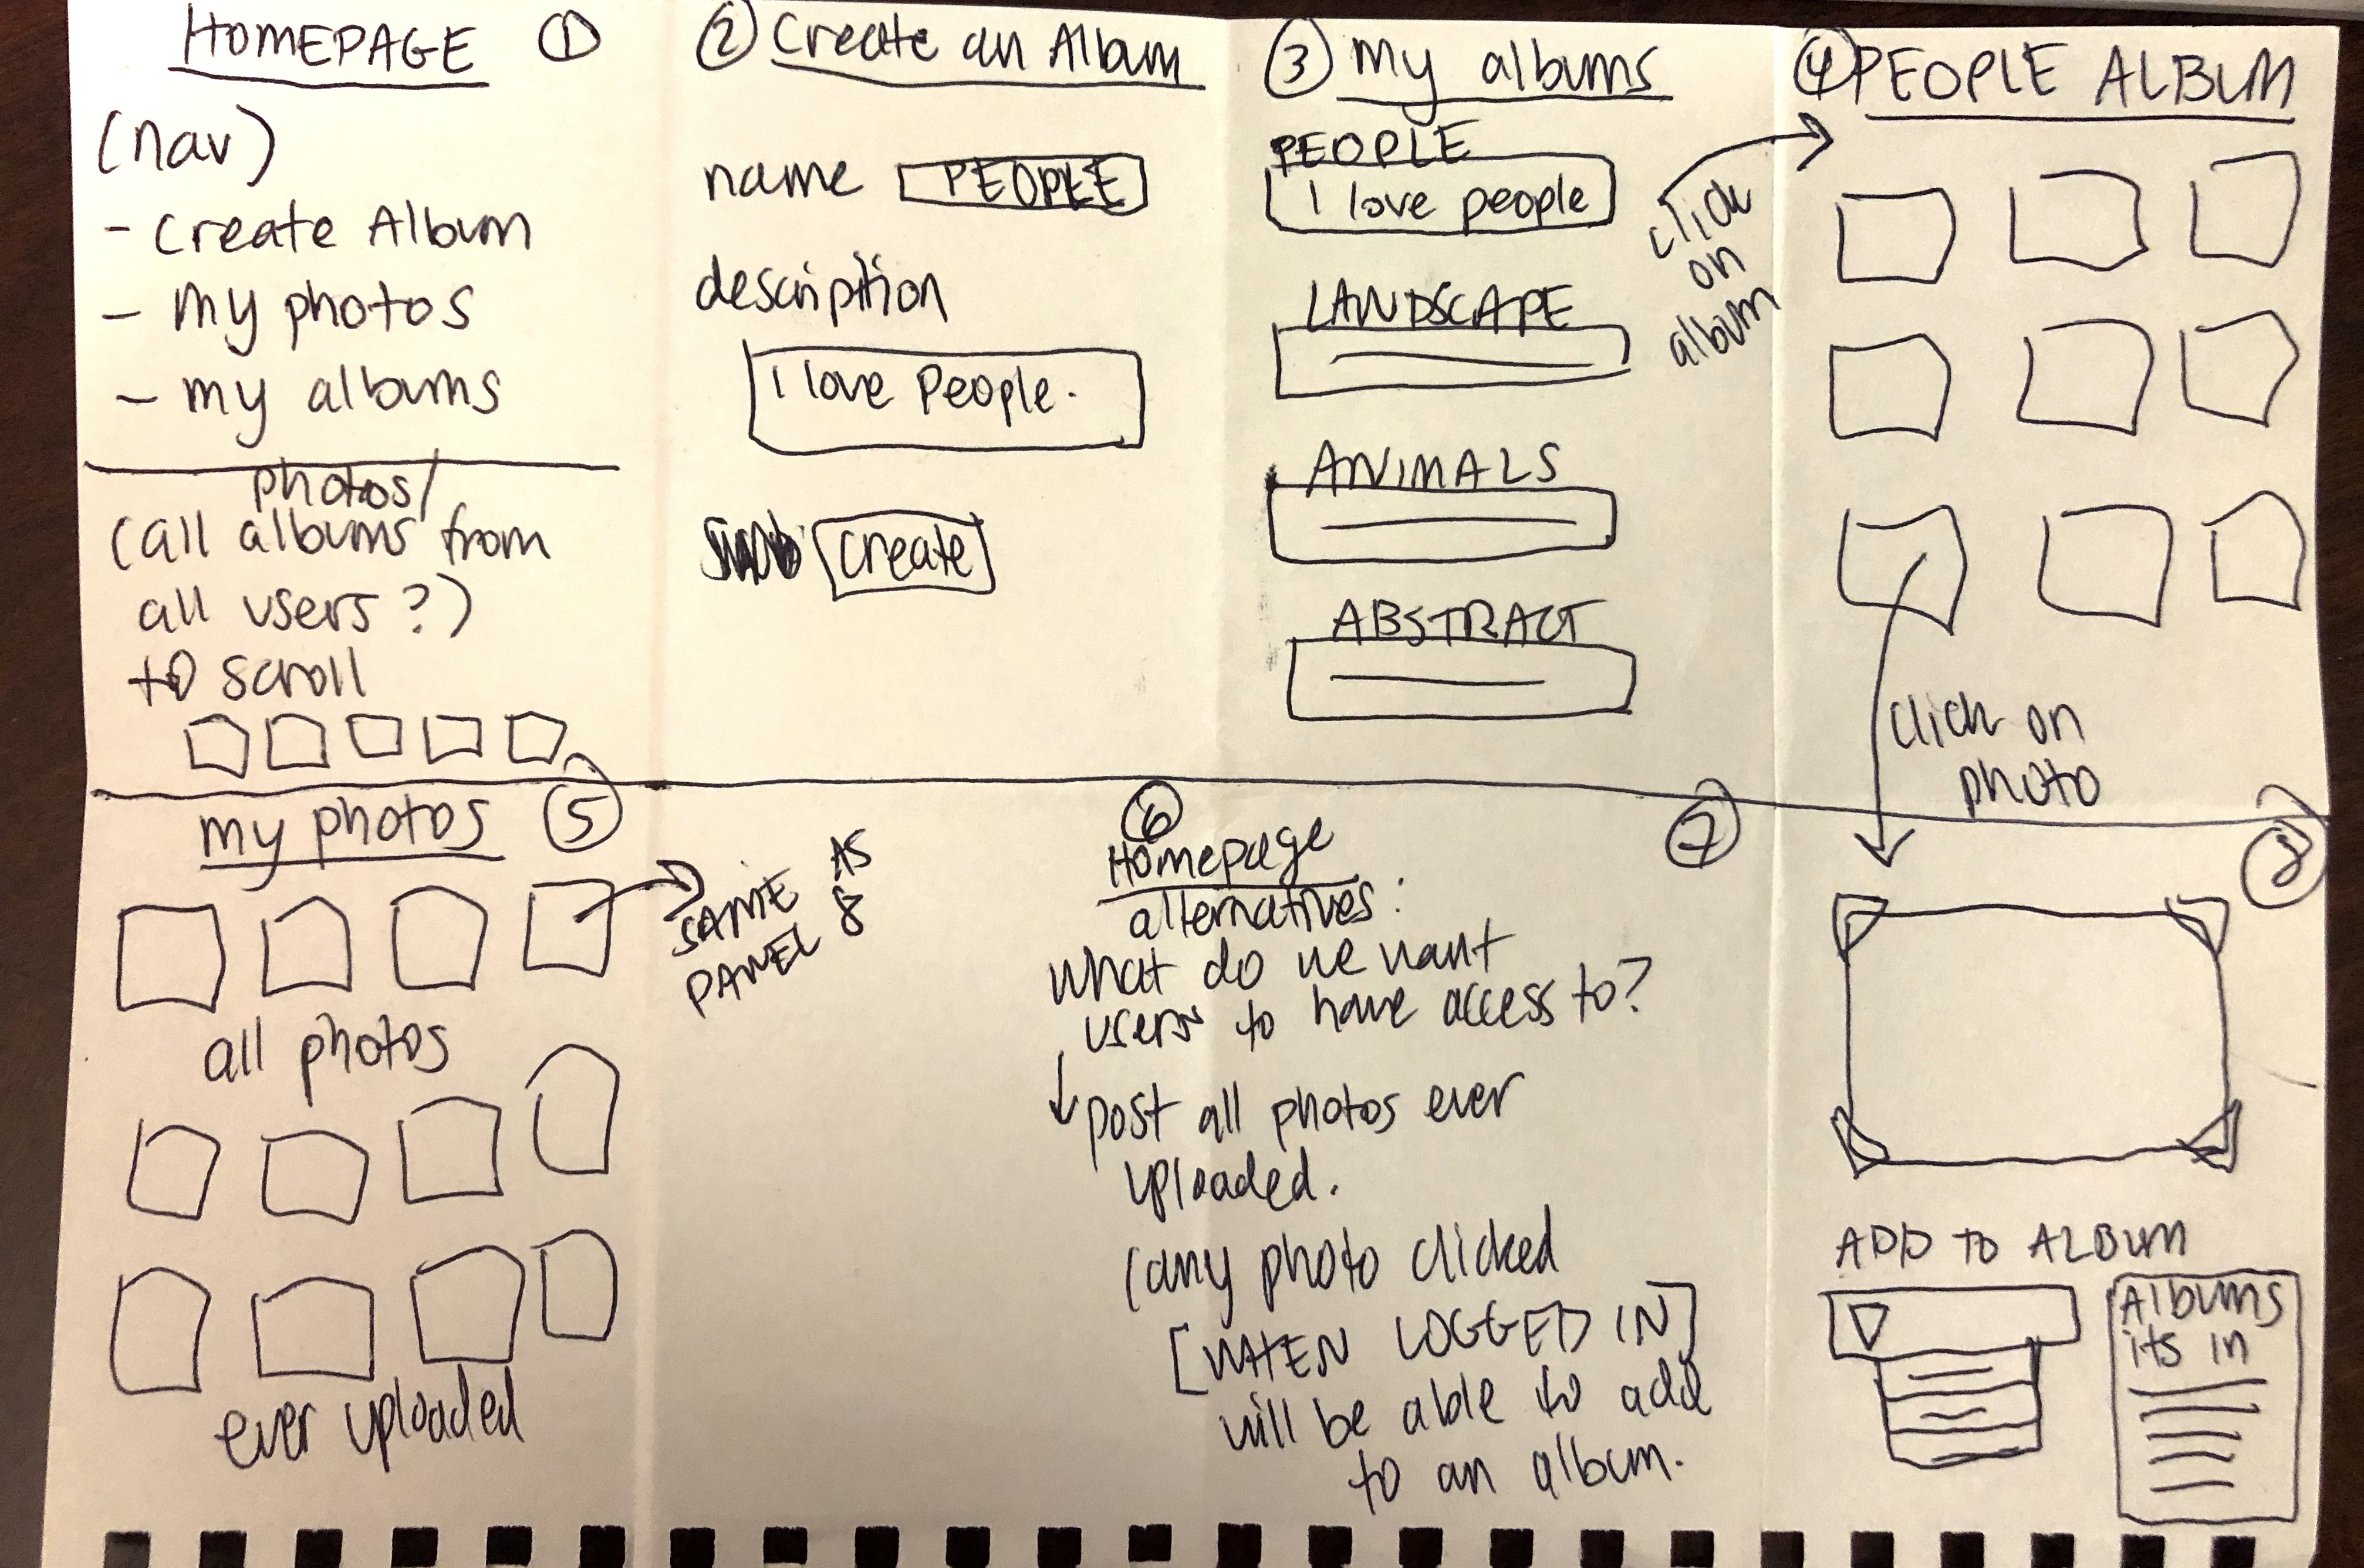 HOMEPAGE ①
(nav)
- Create Album
- my photos
- my albums
photos/
(all albums from
all users?)
to scroll
② Create an Album
name PEOPLE
description
I love People.
create
③ my albums
PEOPLE
I love people
LANDSCAPE
ANIMALS
ABSTRACT
click
on
album
④ PEOPLE ALBUM
click on
photo
my photos ⑤
all photos
ever uploaded
SAME AS
PANEL 8
⑥
Homepage
alternatives:
what do we want
users to have access to?
↓ post all photos ever
uploaded.
(any photo clicked
[WHEN LOGGED IN]
will be able to add
to an album.
⑦
⑧
ADD TO ALBUM
Albums
its in